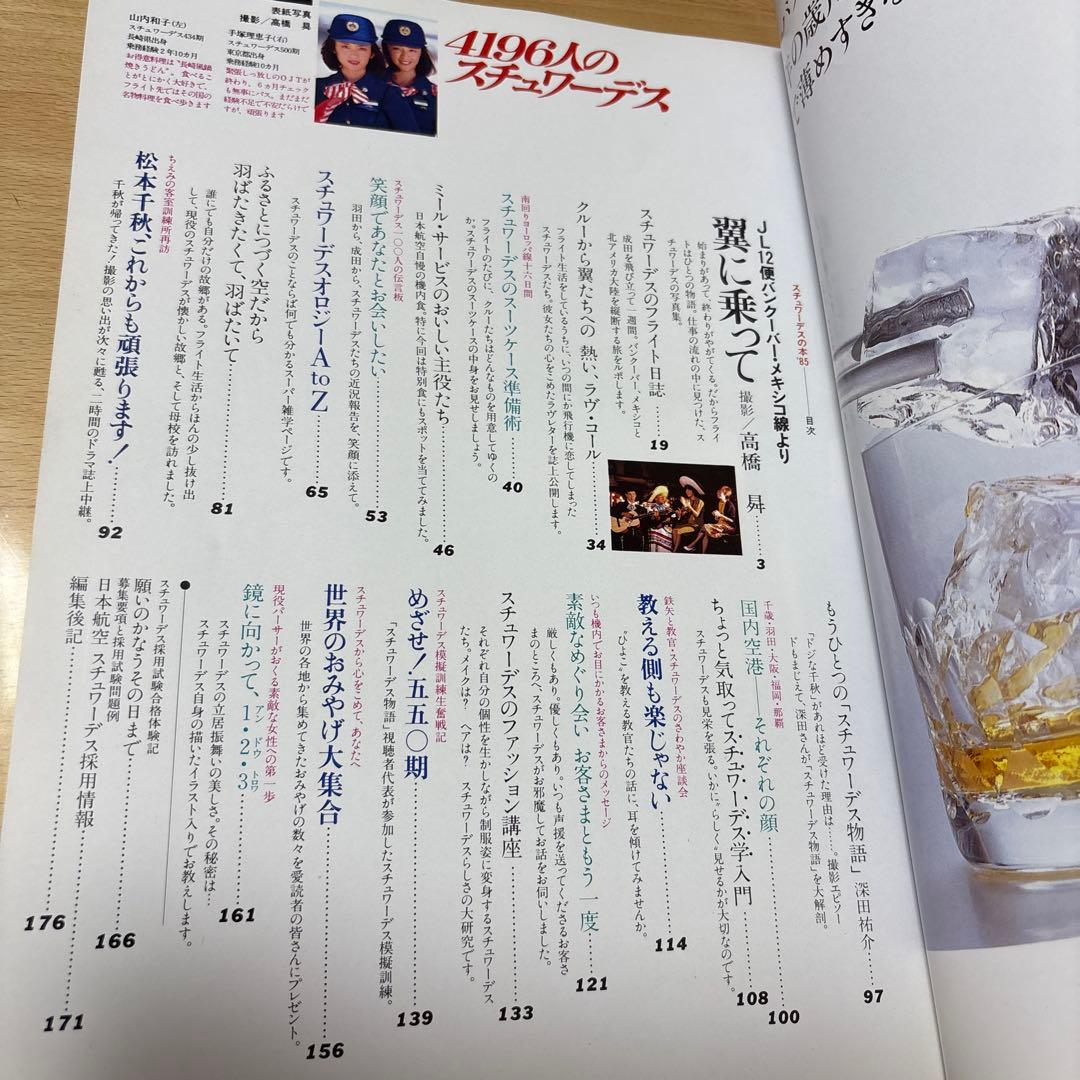 表紙写真
撮影／高橋 曻
山内和子(左)
スチュワーデス434期
長崎県出身
乗務経験2年10カ月
お得意料理は“長崎風鍋
焼きうどん”。食べるこ
とがとにかく大好きで、
フライト先ではその国の
名物料理を食べ歩きます
手塚理恵子(右)
スチュワーデス500期
東京都出身
乗務経験10カ月
緊張しっ放しのOJTが
終わり、6カ月チェック
も無事にパス。まだまだ
経験不足で不安だらけで
すが、頑張ります
4196人の
スチュワーデス
スチュワーデスの本'85
目次
JL12便バンクーバー・メキシコ線より
翼に乗って 撮影／高橋 曻……3
始まりがあって、終わりがやがてくる。だからフライ
トはひとつの物語。仕事の流れの中に見つけた、ス
チュワーデスの写真集。
スチュワーデスのフライト日誌……19
成田を飛び立って一週間。バンクーバー、メキシコと
北アメリカ大陸を縦断する旅をルポします。
クルーから翼たちへの 熱い、ラヴ・コール……34
フライト生活をしているうちに、いつの間にか飛行機に恋してしまった
スチュワーデスたち。彼女たちの心をこめたラヴレターを誌上公開します。
南回りヨーロッパ線十六日間
スチュワーデスのスーツケース準備術……40
フライトのたびに、クルーたちはどんなものを用意してゆくの
か。スチュワーデスのスーツケースの中身をお見せしましょう。
ミール・サービスのおいしい主役たち……46
日本航空自慢の機内食。特に今回は特別食にもスポットを当ててみました。
スチュワーデス一〇〇人の伝言板
笑顔であなたとお会いしたい……53
羽田から、成田から、スチュワーデスたちの近況報告を、笑顔に添えて。
スチュワーデスオロジーA to Z……65
スチュワーデスのことならば何でも分かるスーパー雑学ページです。
ふるさとにつづく空だから
羽ばたきたくて、羽ばたいて……81
誰にでも自分だけの故郷がある。フライト生活からほんの少し抜け出
して、現役のスチュワーデスが懐かしい故郷と、そして母校を訪れました。
ちえみの客室訓練所再訪
松本千秋、これからも頑張ります！……92
千秋が帰ってきた！撮影の思い出が次々に甦る、二時間のドラマ誌上中継。
もうひとつの「スチュワーデス物語」 深田祐介……97
「ドジな千秋」があれほど受けた理由は……。撮影エピソー
ドもまじえて、深田さんが「スチュワーデス物語」を大解剖。
千歳・羽田・大阪・福岡・那覇
国内空港──それぞれの顔……100
ちょっと気取ってスチュワーデス学入門……108
スチュワーデスも見栄を張る。いかに“らしく”見せるかが大切なのです。
鉄矢と教官・スチュワーデスのさわやか座談会
教える側も楽じゃない……114
“ひよこ”を教える教官たちの話に、耳を傾けてみませんか。
いつも機内でお目にかかるお客さまからのメッセージ
素敵なめぐり会い お客さまともう一度……121
厳しくもあり、優しくもあり。いつも声援を送ってくださるお客さ
まのところへ、スチュワーデスがお邪魔してお話をお伺いしました。
スチュワーデスのファッション講座……133
それぞれ自分の個性を生かしながら制服姿に変身するスチュワーデス
たち。メイクは？ ヘアは？ スチュワーデスらしさの大研究です。
スチュワーデス模擬訓練生奮戦記
めざせ！五五〇期……139
「スチュワーデス物語」視聴者代表が参加したスチュワーデス模擬訓練。
スチュワーデスから心をこめて、あなたへ
世界のおみやげ大集合……156
世界の各地から集めてきたおみやげの数々を愛読者の皆さんにプレゼント。
現役パーサーがおくる素敵な女性への第一歩
鏡に向かって、1・2・3……161
アン ドゥ トロワ
スチュワーデスの立居振舞いの美しさ。その秘密は…
スチュワーデス自身の描いたイラスト入りでお教えします。
スチュワーデス採用試験合格体験記
願いのかなうその日まで……166
募集要項と採用試験問題例
日本航空 スチュワーデス採用情報……171
編集後記……176